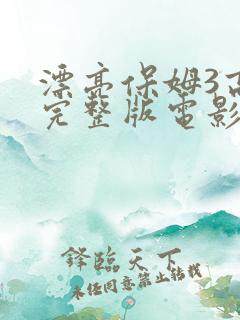 漂亮保姆3高
完整版电影
锋临天下
未经同意禁止转载